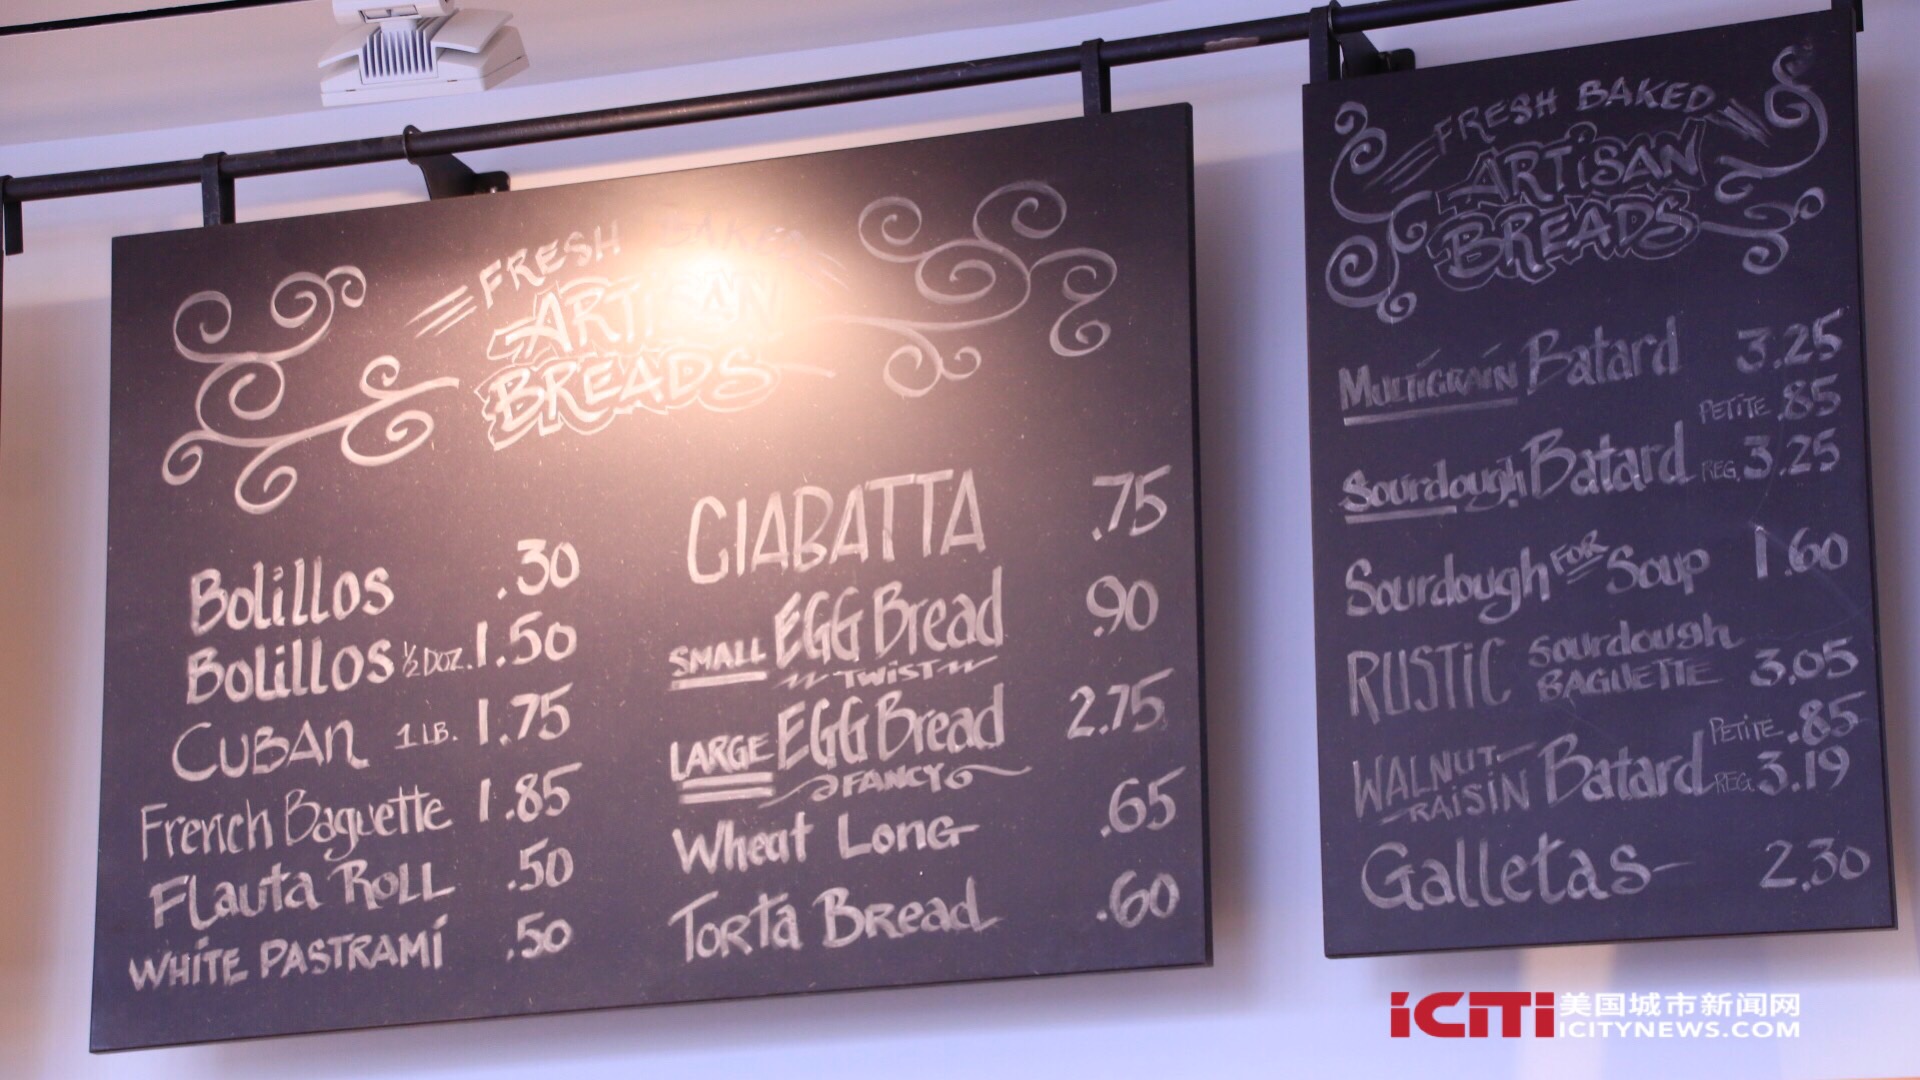 FRESH BAKED
ARTISAN
BREADS
Bolillos .30
Bolillos ½ DOZ. 1.50
CUBAN 1 LB. 1.75
French Baguette 1.85
Flauta Roll .50
WHITE PASTRAMI .50
CIABATTA .75
SMALL EGG Bread .90
TWIST
LARGE EGG Bread 2.75
FANCY
Wheat Long .65
Torta Bread .60
FRESH BAKED
ARTISAN
BREADS
MULTIGRAIN Batard 3.25
PETITE .85
Sourdough Batard REG. 3.25
Sourdough FOR Soup 1.60
RUSTIC Sourdough BAGUETTE 3.05
PETITE .85
WALNUT-RAISIN Batard REG. 3.19
Galletas 2.30
iCiTi 美国城市新闻网
ICITYNEWS.COM